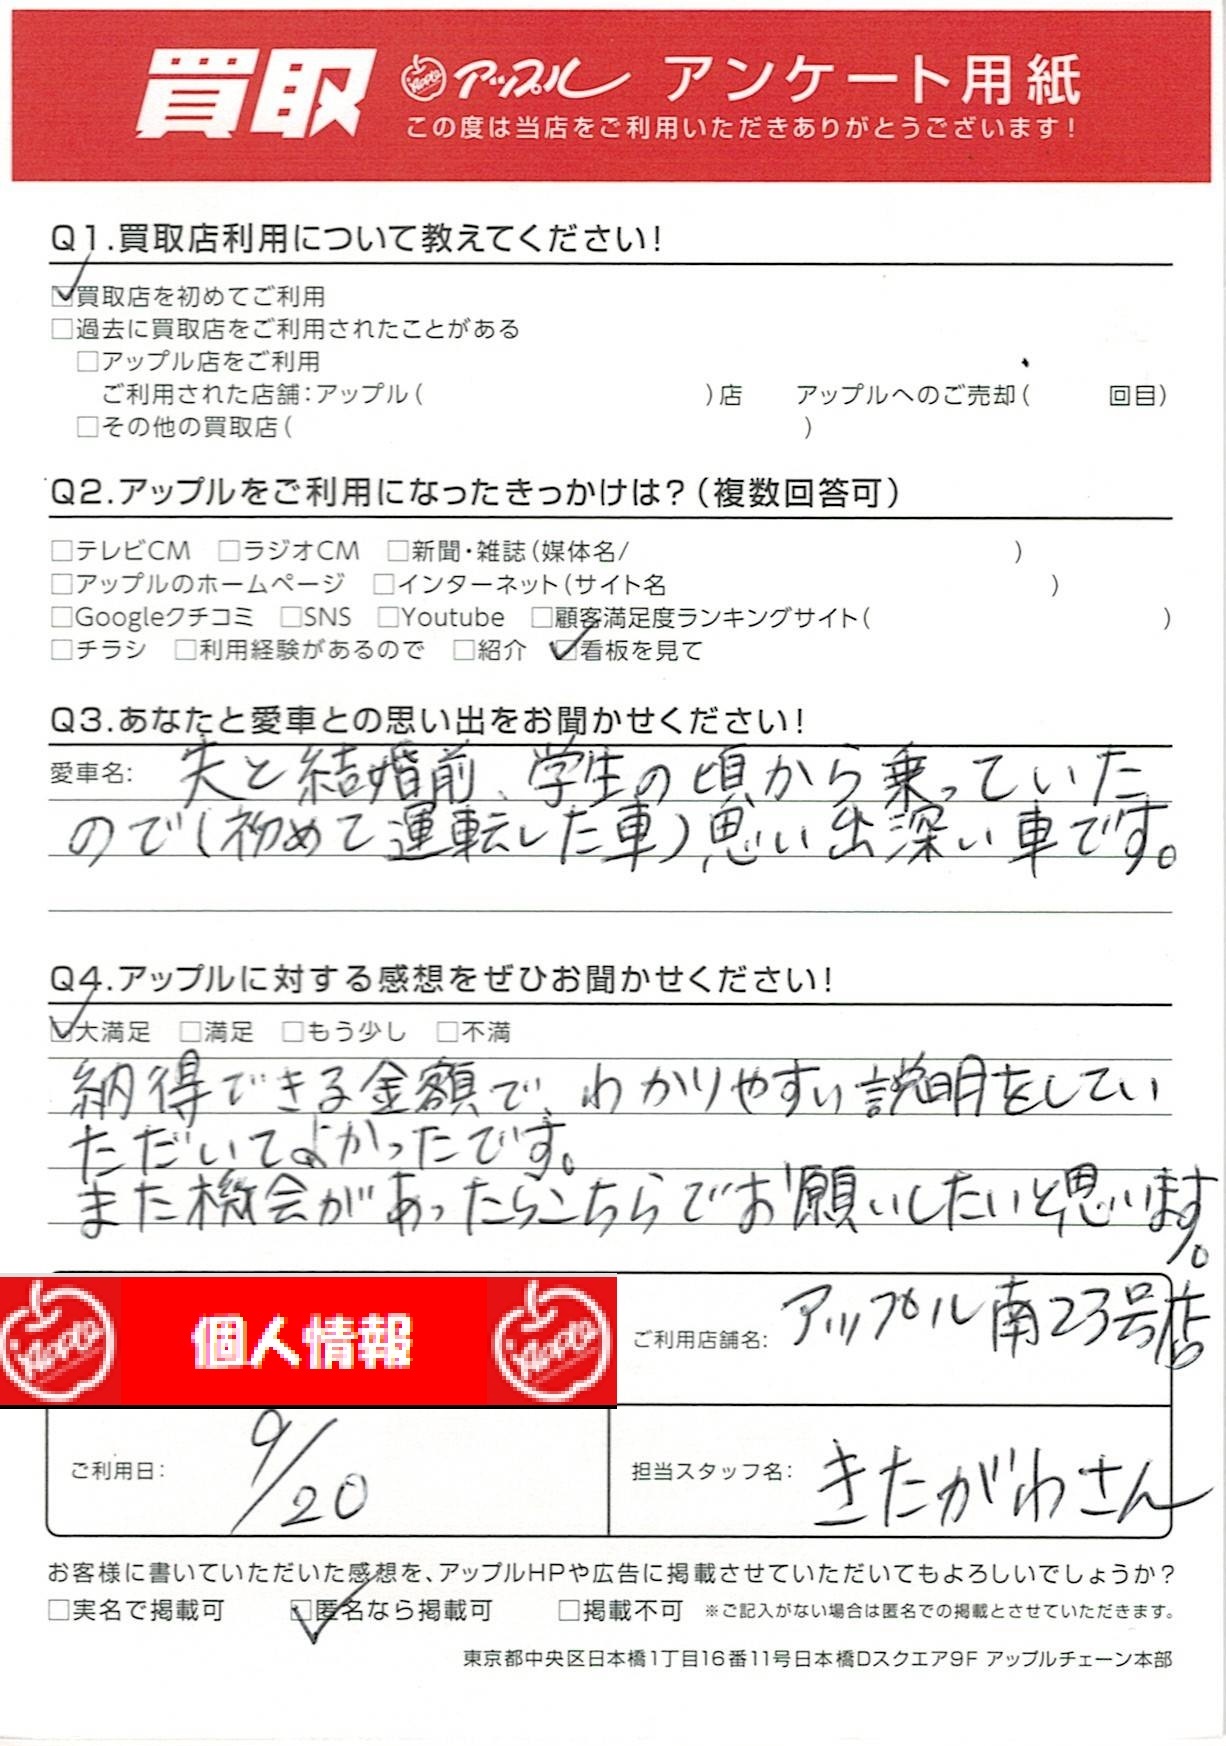 買取 Apple アップル アンケート用紙
この度は当店をご利用いただきありがとうございます！
Q1.買取店利用について教えてください！
☑買取店を初めてご利用
□過去に買取店をご利用されたことがある
□アップル店をご利用
ご利用された店舗：アップル（　　　）店　アップルへのご売却（　　　回目）
□その他の買取店（　　　）
Q2.アップルをご利用になったきっかけは？（複数回答可）
□テレビCM　□ラジオCM　□新聞・雑誌（媒体名/　　　）
□アップルのホームページ　□インターネット（サイト名　　　）
□Googleクチコミ　□SNS　□Youtube　□顧客満足度ランキングサイト（　　　）
□チラシ　□利用経験があるので　□紹介　☑看板を見て
Q3.あなたと愛車との思い出をお聞かせください！
愛車名： 夫と結婚前、学生の頃から乗っていた
ので（初めて運転した車）思い出深い車です。
Q4.アップルに対する感想をぜひお聞かせください！
☑大満足　□満足　□もう少し　□不満
納得できる金額で、わかりやすい説明をしてい
ただいてよかったです。
また機会があったらこちらでお願いしたいと思います。
Apple 個人情報 Apple
ご利用店舗名： アップル南23号店
ご利用日： 9/20
担当スタッフ名： きたがわさん
お客様に書いていただいた感想を、アップルHPや広告に掲載させていただいてもよろしいでしょうか？
□実名で掲載可　☑匿名なら掲載可　□掲載不可　※ご記入がない場合は匿名での掲載とさせていただきます。
東京都中央区日本橋1丁目16番11号日本橋Dスクエア9F アップルチェーン本部